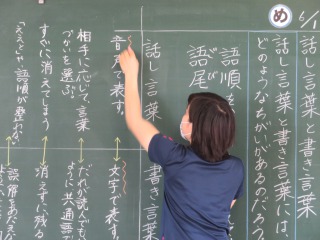 6/1
め
話し言葉と書き言葉には、
どのようなちがいがあるのだろう
語順や
語尾
話し言葉
音声で表す。
相手に応じて、言葉
づかいを選ぶ。
すぐに消えてしまう
書き言葉
文字で表す。
だれが読んでも
ように共通語で
消えずに残る